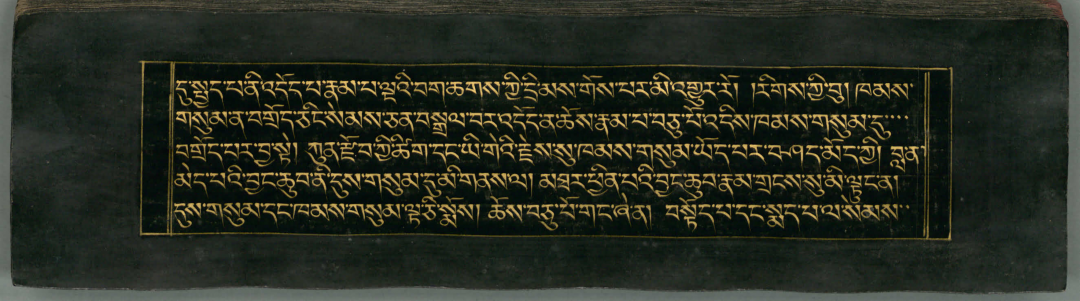 དུ་སྤྱད་པ་ནི་འདོད་པ་རྣམ་པ་ལྔའི་བག་ཆགས་ཀྱི་དྲི་མས་གོས་པར་མི་འགྱུར་རོ། །རིགས་ཀྱི་བུ། ཁམས་
གསུམ་ན་བགྲོད་ཅིང་སེམས་ཅན་བསྒྲལ་བར་འདོད་ན་ཆོས་རྣམ་པ་བཅུ་པོ་འདིས་ཁམས་གསུམ་དུ་་་་
བགྲོད་པར་བྱ་སྟེ། ཀུན་རྫོབ་ཀྱི་ཚིག་དང་ཡི་གེའི་རྗེས་སུ་ཁམས་གསུམ་ཡོད་པར་བ་ཤད་མོད་ཀྱི། བླན།
མེད་པའི་བྱང་ཆུབ་ནི་དུས་གསུམ་དུ་མི་གནས་ལ། མཐར་ཕྱིན་པའི་བྱང་ཆུབ་རྣམ་གྲངས་སུ་མི་ལྟུང་ན།
དུས་གསུམ་དང་ཁམས་གསུམ་ལྟ་ཅི་སྨོས། ཆོས་བཅུ་པོ་གང་ཞེ་ན། བསྟོད་པ་དང་སྨད་པ་ལ་སེམས་་་